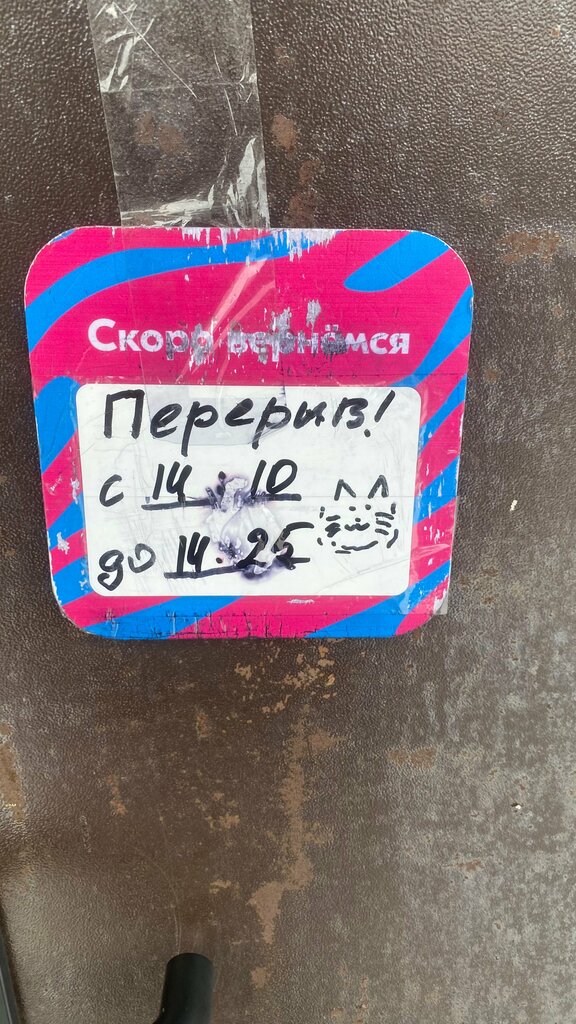 Скоро вернёмся
Перерыв!
с 14:10
до 14:25